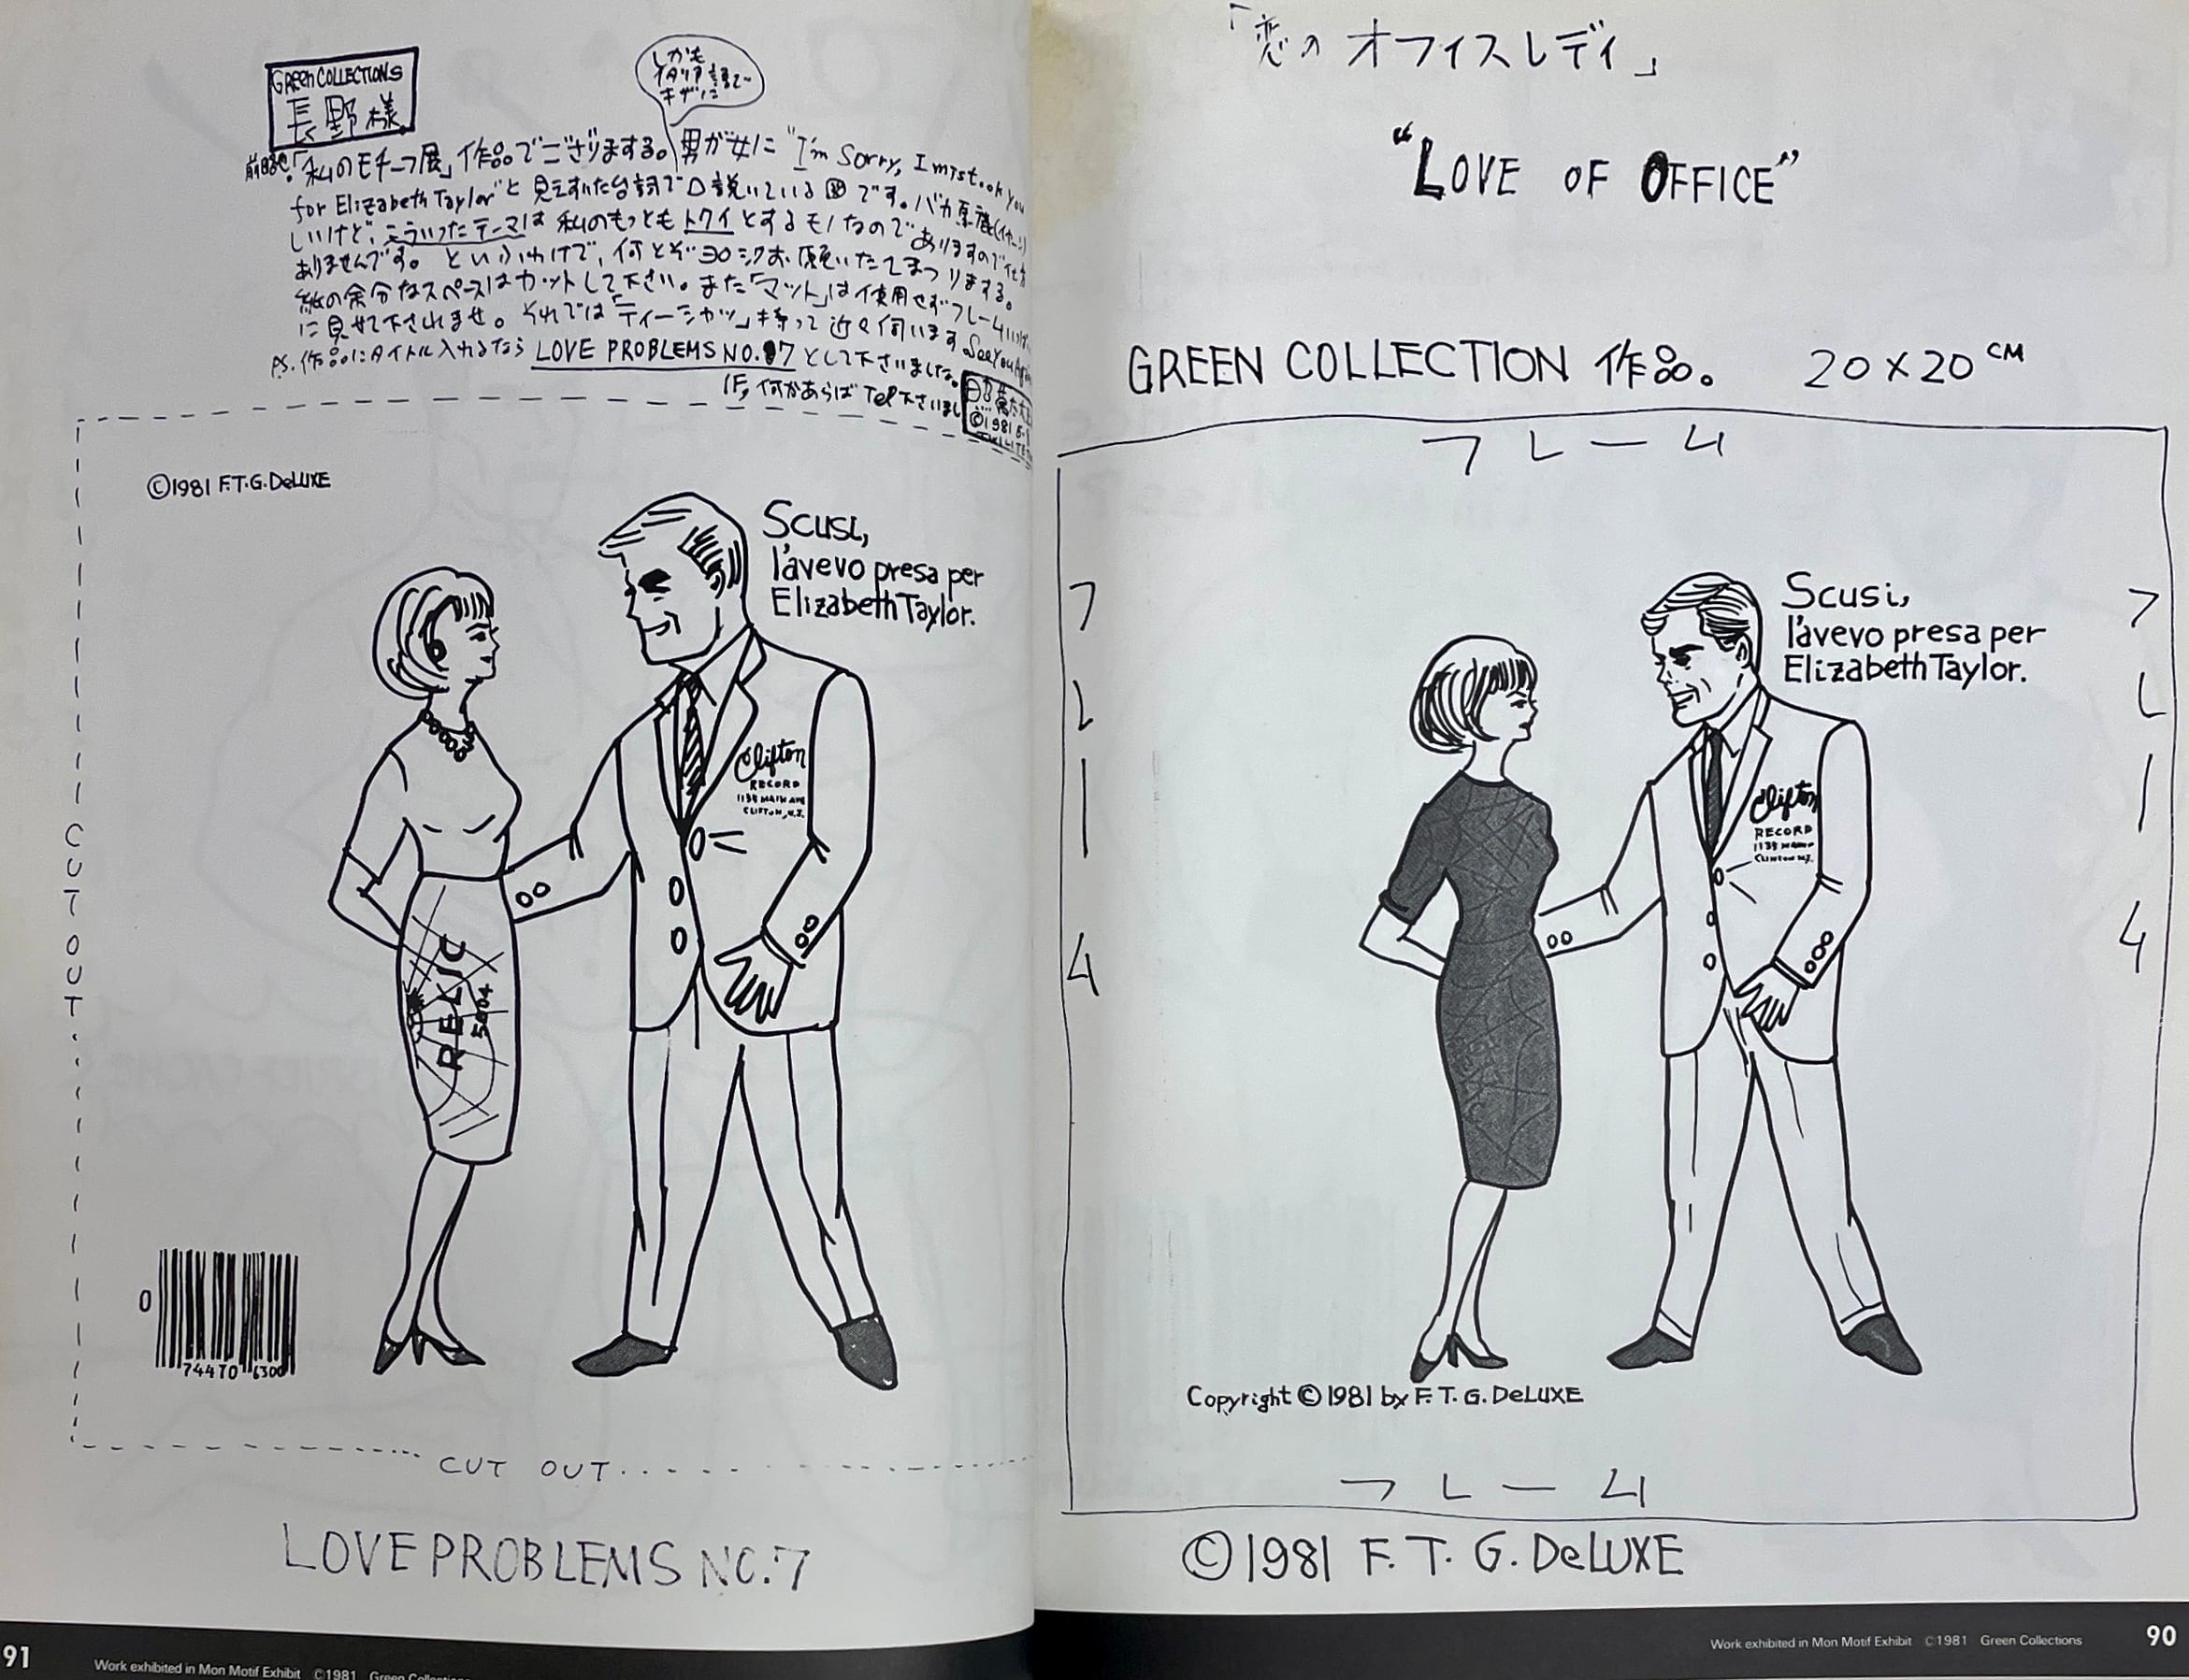 GREEN COLLECTIONS
長野様
しかも
イタリア語で
キザに
前略.「私のモチーフ展」作品でございまする。男が女に "I'm Sorry, I mistook you
for Elizabeth Taylor"と見えすいた台詞で口説いている図です。バカ
しいけど、こういったテーマは私のもっともトクイとするモノなのでありますので仕方
ありませんです。というわけで、何とぞヨロシクお願いたてまつりまする。
紙の余分なスペースはカットして下さい。また「マット」は使用せずフレーム
に見せて下されませ。それでは「ティーシャツ」持って近々伺います See You Again
P.S. 作品にタイトル入れるなら LOVE PROBLEMS NO.7 として下さいましな。
IF, 何かあらば Tel 下さいまし
©1981
©1981 F.T.G. DeLUXE
Scusi,
l'avevo presa per
Elizabeth Taylor.
Clifton
RECORD
1135 MAIN AVE
CLIFTON, N.J.
RELIC
5004
CUT OUT
0
74470 6300
CUT OUT
LOVE PROBLEMS NO.7
91
Work exhibited in Mon Motif Exhibit ©1981 Green Collections
「恋のオフィスレディ」
"LOVE OF OFFICE"
GREEN COLLECTION 作品。 20×20 CM
フレーム
フレーム
フレーム
Scusi,
l'avevo presa per
Elizabeth Taylor.
Clifton
RECORD
1135
Copyright ©1981 by F.T.G. DeLUXE
フレーム
©1981 F.T.G. DeLUXE
Work exhibited in Mon Motif Exhibit ©1981 Green Collections
90